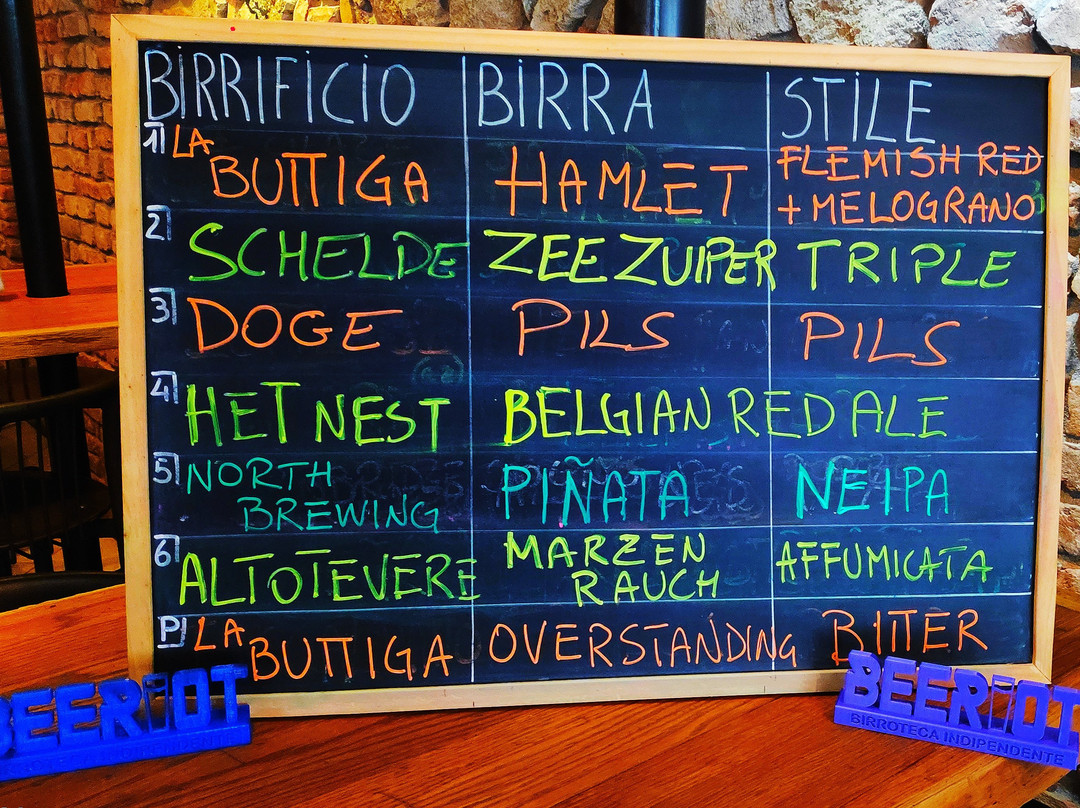 BIRRIFICIO BIRRA STILE
1 LA BUTTIGA HAMLET FLEMISH RED
+ MELOGRANO
2 SCHELDE ZEEZUIPER TRIPLE
3 DOGE PILS PILS
4 HET NEST BELGIAN RED ALE
5 NORTH
BREWING PIÑATA NEIPA
6 ALTOTEVERE MARZEN
RAUCH AFFUMICATA
P LA BUTTIGA OVERSTANDING BITTER
BEERiOT
BEERiOT
BIRROTECA INDIPENDENTE